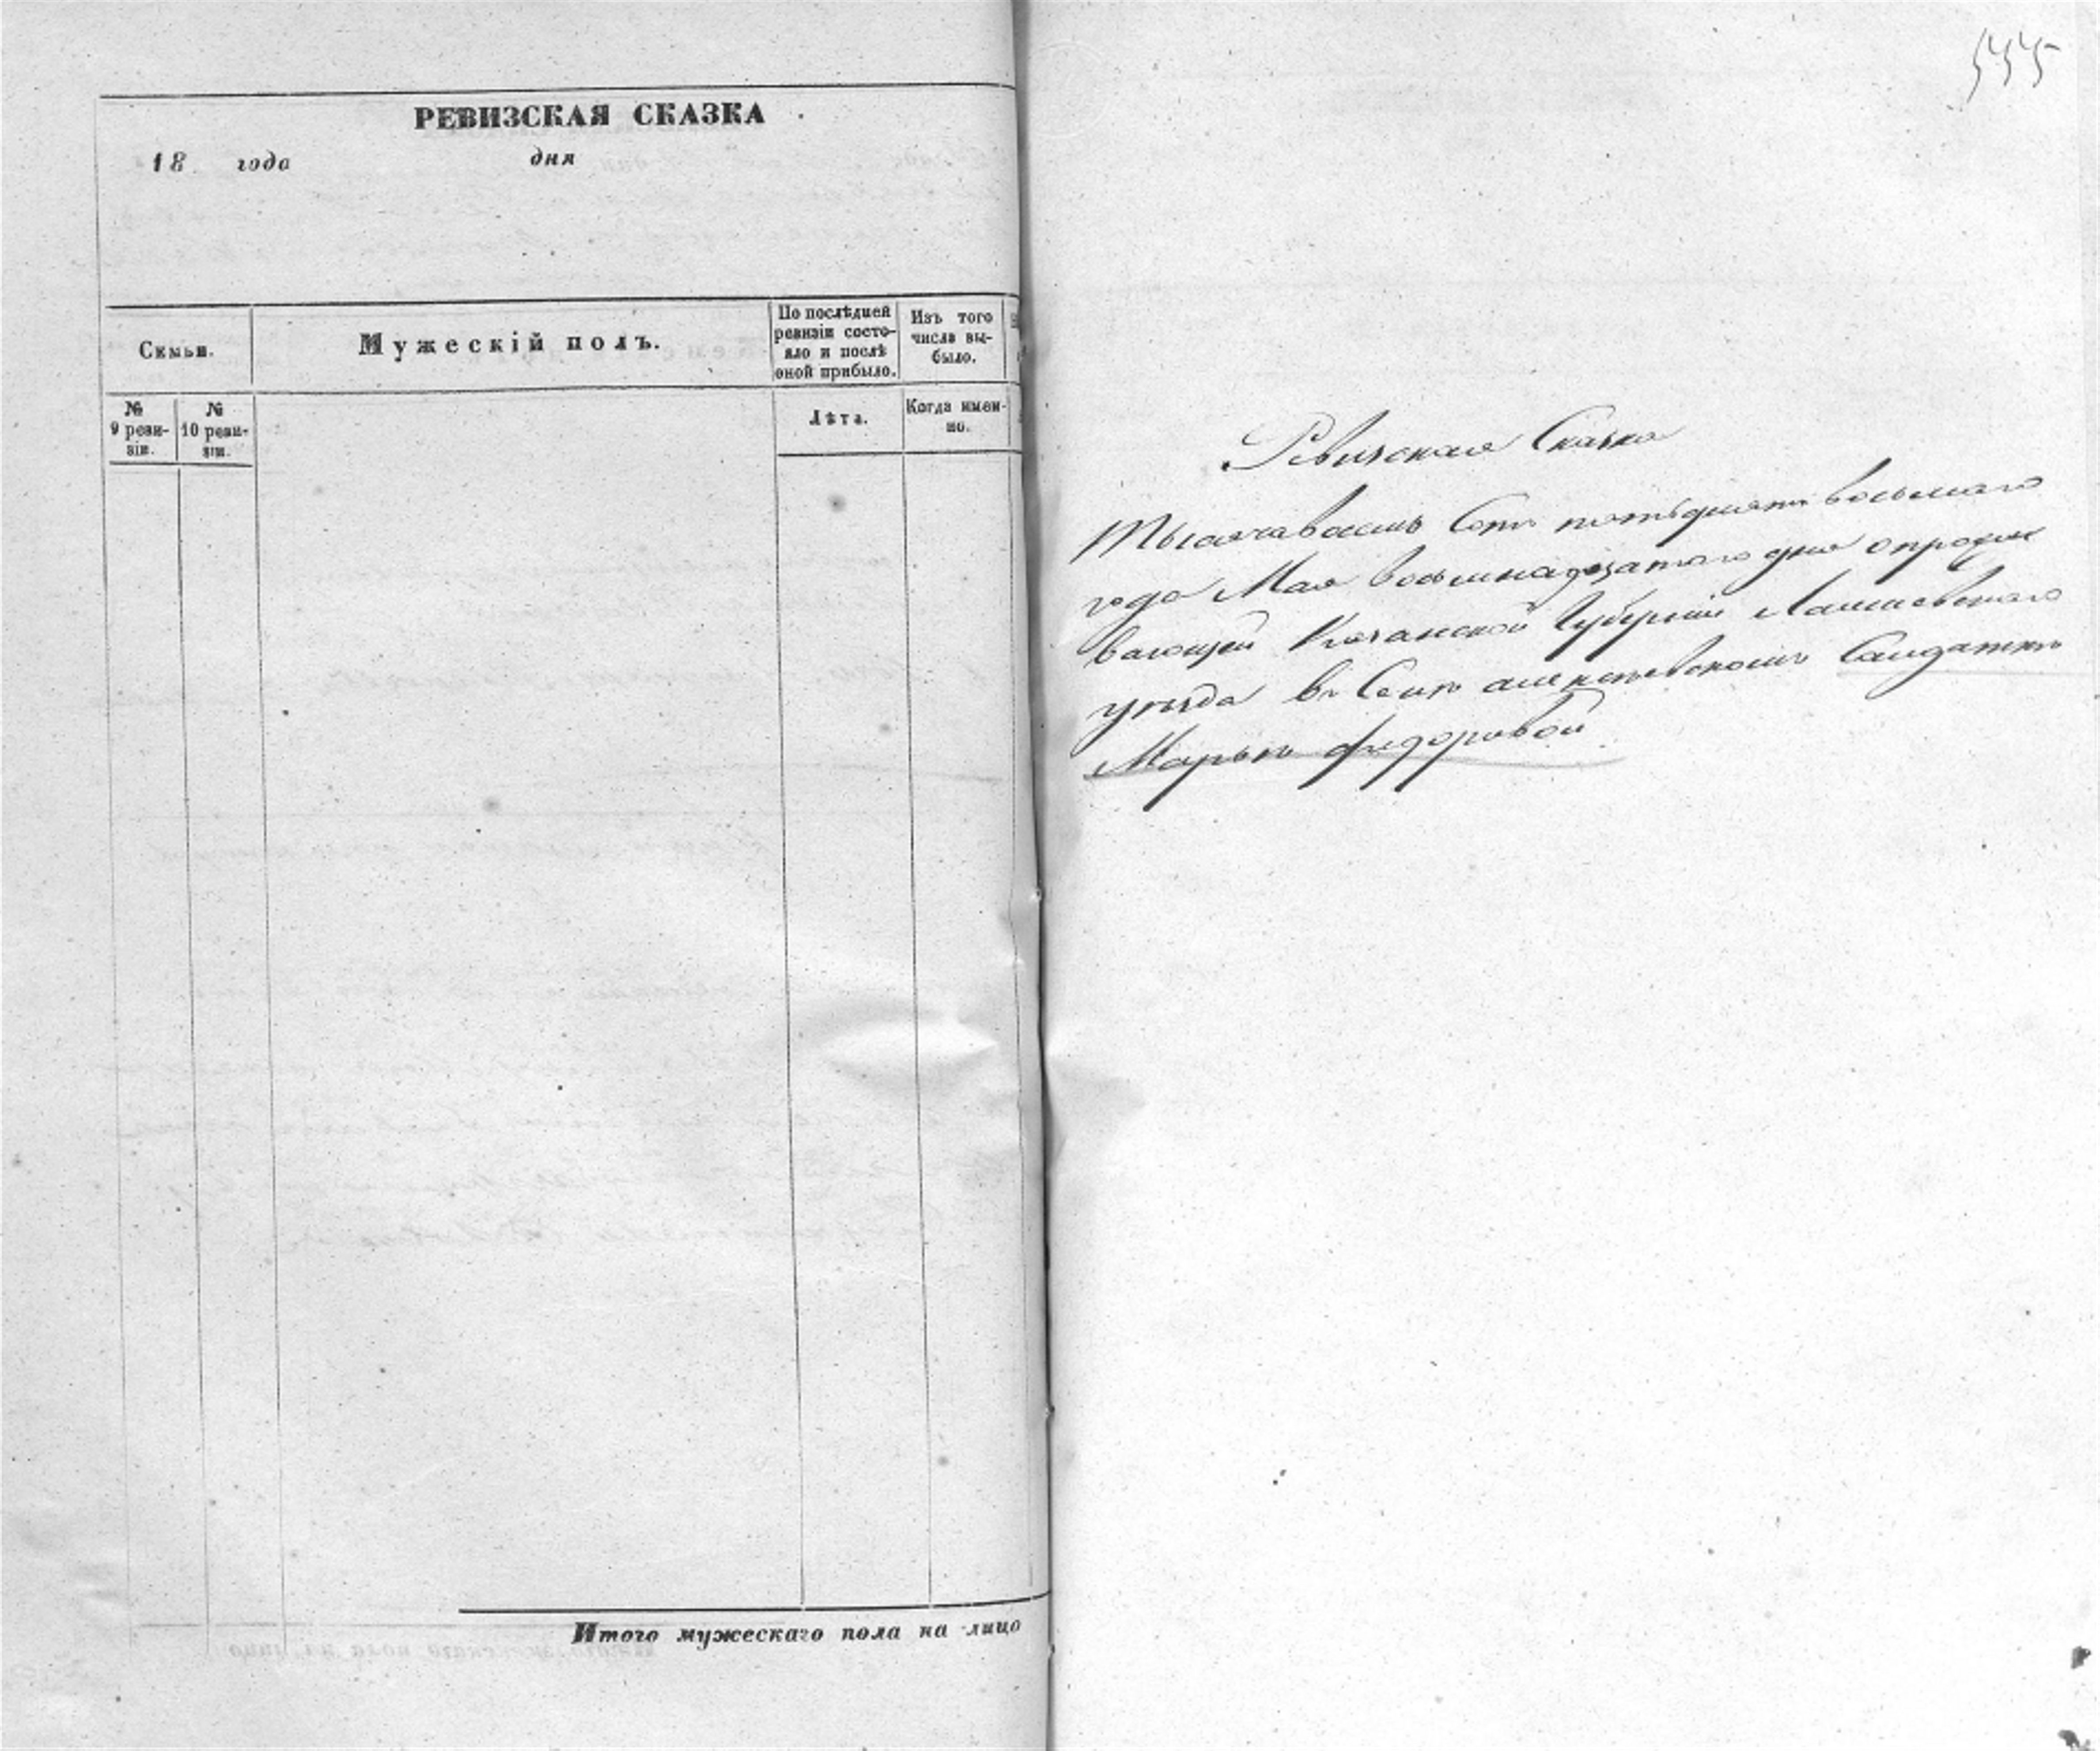 РЕВИЗСКАЯ СКАЗКА
18 года дня
Семьи.
Мужескій полъ.
По послѣдней
ревизіи состо-
яло и послѣ
оной прибыло.
Изъ того
числа вы-
было.
№
9 реви-
зіи.
№
10 реви-
зіи.
Лѣта.
Когда имен-
но.
Итого мужескаго пола на лицо
555
Ревизская Сказка
Тысяча восемь Сотъ пятьдесятъ восьмаго
года Мая восемнадцатаго дня о прожи
вающей Казанской Губерніи Лаишевскаго
уѣзда въ Селѣ алексѣевскомъ Салдаткѣ
Марьѣ федоровой